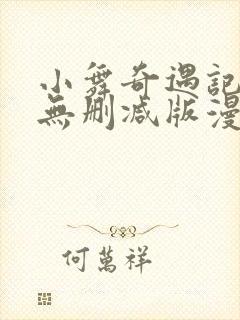 小舞奇遇記
無删减版漫
何萬祥